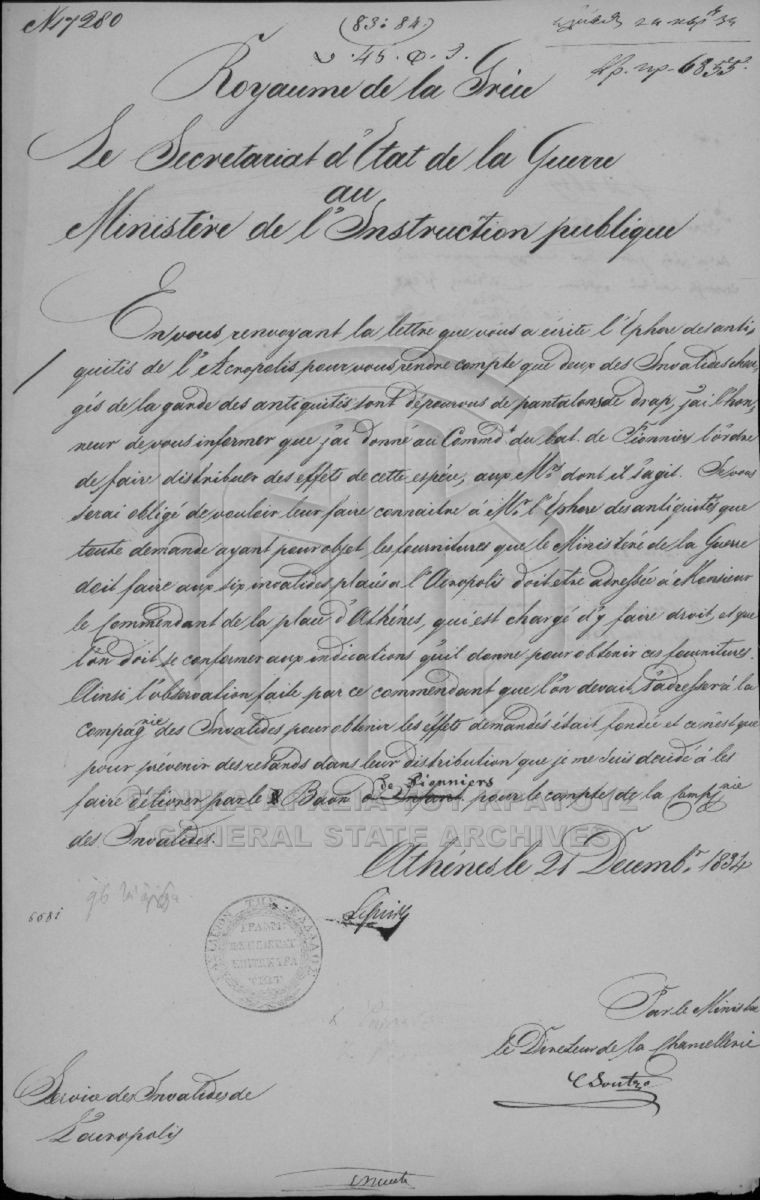 N 17280
(83: 84.)
45. Φ. 9.
Αρ. πρ. 6855.
Royaume de la Grèce
Le Secretariat d'Etat de la Guerre
au
Ministère de l'Instruction publique
En vous renvoyant la lettre que vous a écrite l'Ephore des anti„
quités de l'Acropolis pour vous rendre compte que deux des Invalides char„
gés de la garde des antiquités sont dépourvus de pantalons de drap, j'ai l'hon„
neur de vous informer que j'ai donné au Commdt du bat. de Pionniers l'ordre
de faire distribuer des effets de cette espèce, aux Mrs dont il s'agit. Je vous
serai obligé de vouloir leur faire connaitre à Mr. l'Ephore des antiquités que
toute demande ayant pour objet les fournitures que le Ministère de la Guerre
doit faire aux six invalides placés a l'Acropolis doit etre adressée à Monsieur
le Commendant de la place d'Athénes, qui est chargé d'y faire droit, et que
l'on doit se conformer aux indications qu'il donne pour obtenir ces fournitures.
Ainsi l'observation faite par ce commendant que l'on devait s'adresser à la
compagnie des Invalides pour obtenir les éffets demandés était fondée et ce n'est que
pour prévenir des retards dans leur distribution que je me suis decidé à les
de Pionniers
faire délivrer par le Baon d'Infant pour le compte de la Compgnie
des Invalides.
Athénes le 21 Decembr. 1834
6681
Par le Ministre
le Directeur de la Chancellerie
C Soutzo
Service des Invalides de
L'acropolis
ΓΕΝΙΚΑ ΑΡΧΕΙΑ ΤΟΥ ΚΡΑΤΟΥΣ
GENERAL STATE ARCHIVES